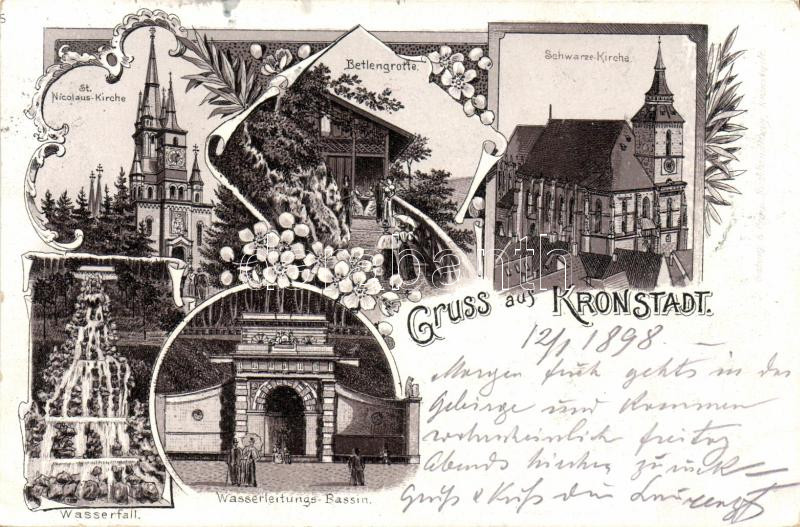 St.
Nicolaus-Kirche
Betlengrotte.
Schwarze-Kirche.
Gruss aus KRONSTADT.
12/1 1898.
Morgen früh gehts in das
Gebirge und kommen
wahrscheinlich freitag
Abends hierher zurück
Gruß & Kuß dein
Wasserfall.
Wasserleitungs-Bassin.
darabanth